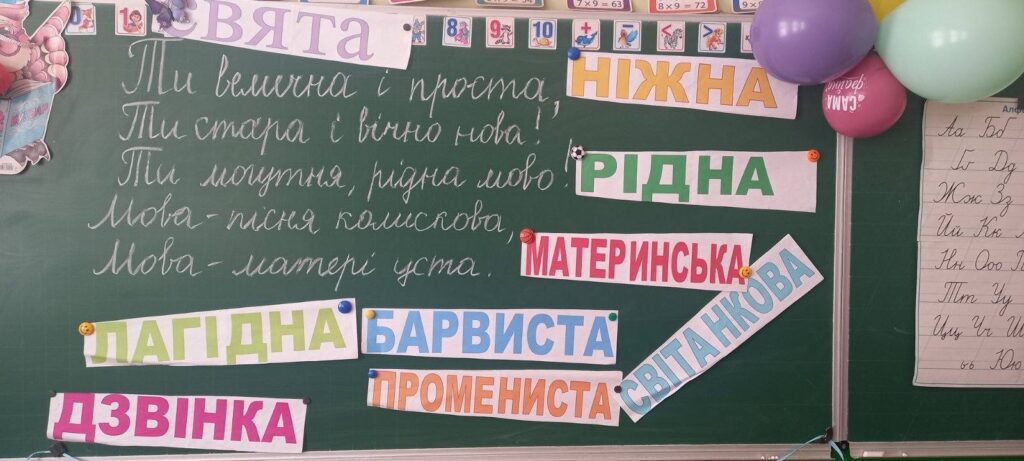 7×9 = 63
8×9 = 72
8
9
10
СВЯТА
Ти велична і проста,
Ти стара і вічно нова!
Ти могутня, рідна мово!
Мова - пісня колискова,
Мова - матері уста.
НІЖНА
РІДНА
МАТЕРИНСЬКА
СВІТАНКОВА
ЛАГІДНА
БАРВИСТА
ПРОМЕНИСТА
ДЗВІНКА
САМА
файна
Аа Бб
Гг Дд
Жж Зз
Йй Кк
Нн Оо
Тт Уу
Цц Чч
ьь Юю